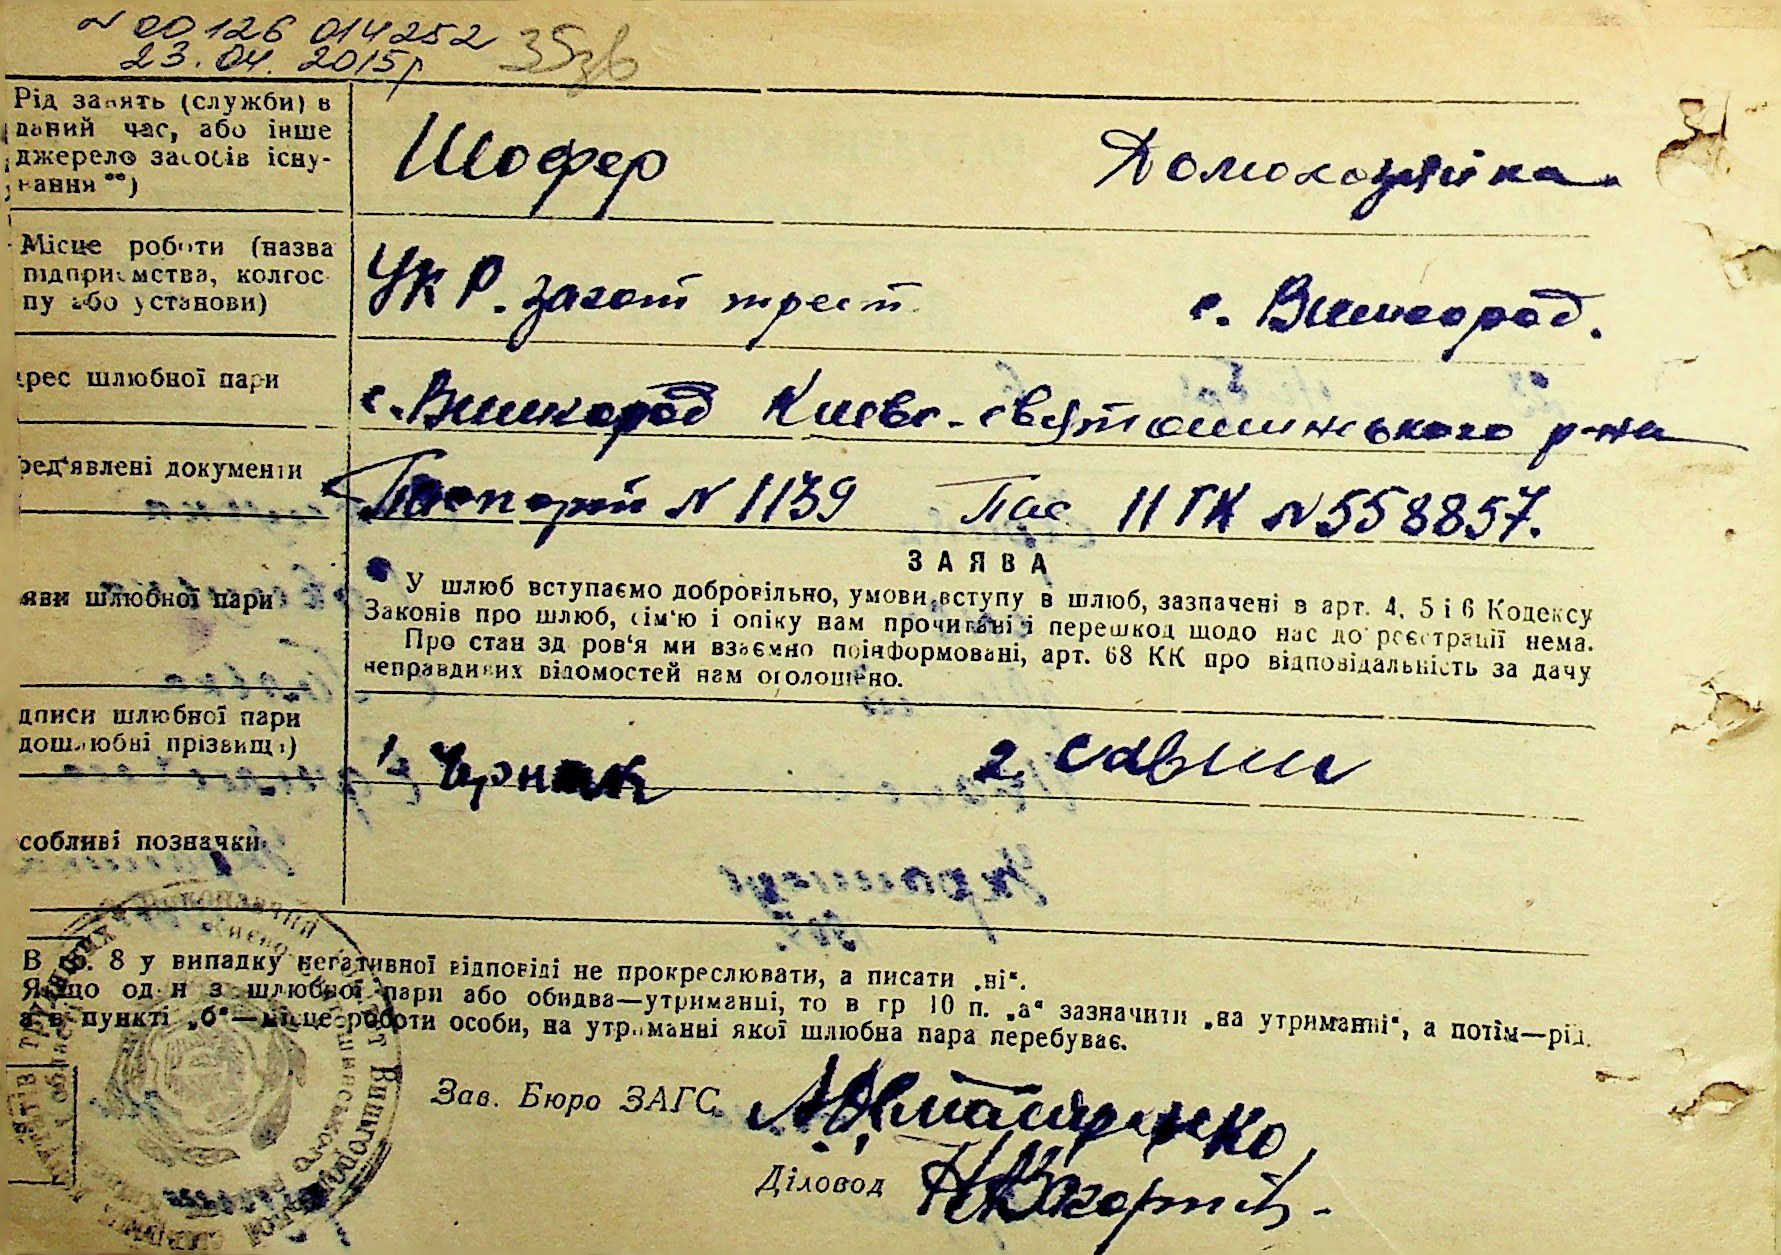 N 00126 014252
23.04.2015р
35зв
Рід занять (служби) в
даний час, або інше
джерело засобів існу-
вання **)
Шофер
Домохозяйка
Місце роботи (назва
підприємства, колгос-
пу або установи)
УКР. загот трест
с. Вишгород.
рес шлюбної пари
с. Вишгород Києво-святошинського р-на
ред'явлені документи
Паспорт N 1139
Пас. II ГК N 558857.
яви шлюбної пари
ЗАЯВА
У шлюб вступаємо добровільно, умови вступу в шлюб, зазначені в арт. 4, 5 і 6 Кодексу
Законів про шлюб, сім'ю і опіку нам прочитані і перешкод щодо нас до реєстрації нема.
Про стан здоров'я ми взаємно поінформовані, арт. 68 КК про відповідальність за дачу
неправдивих відомостей нам оголошено.
дписи шлюбної пари
дошлюбні прізвища)
1.
2. Савш
собливі позначки
В гр. 8 у випадку негативної відповіді не прокреслювати, а писати „ні“.
Якщо один з шлюбної пари або обидва—утриманці, то в гр 10 п. „а“ зазначити „на утриманні“, а потім—рід.
а в пункті „б“—місце роботи особи, на утриманні якої шлюбна пара перебуває.
Зав. Бюро ЗАГС
Діловод